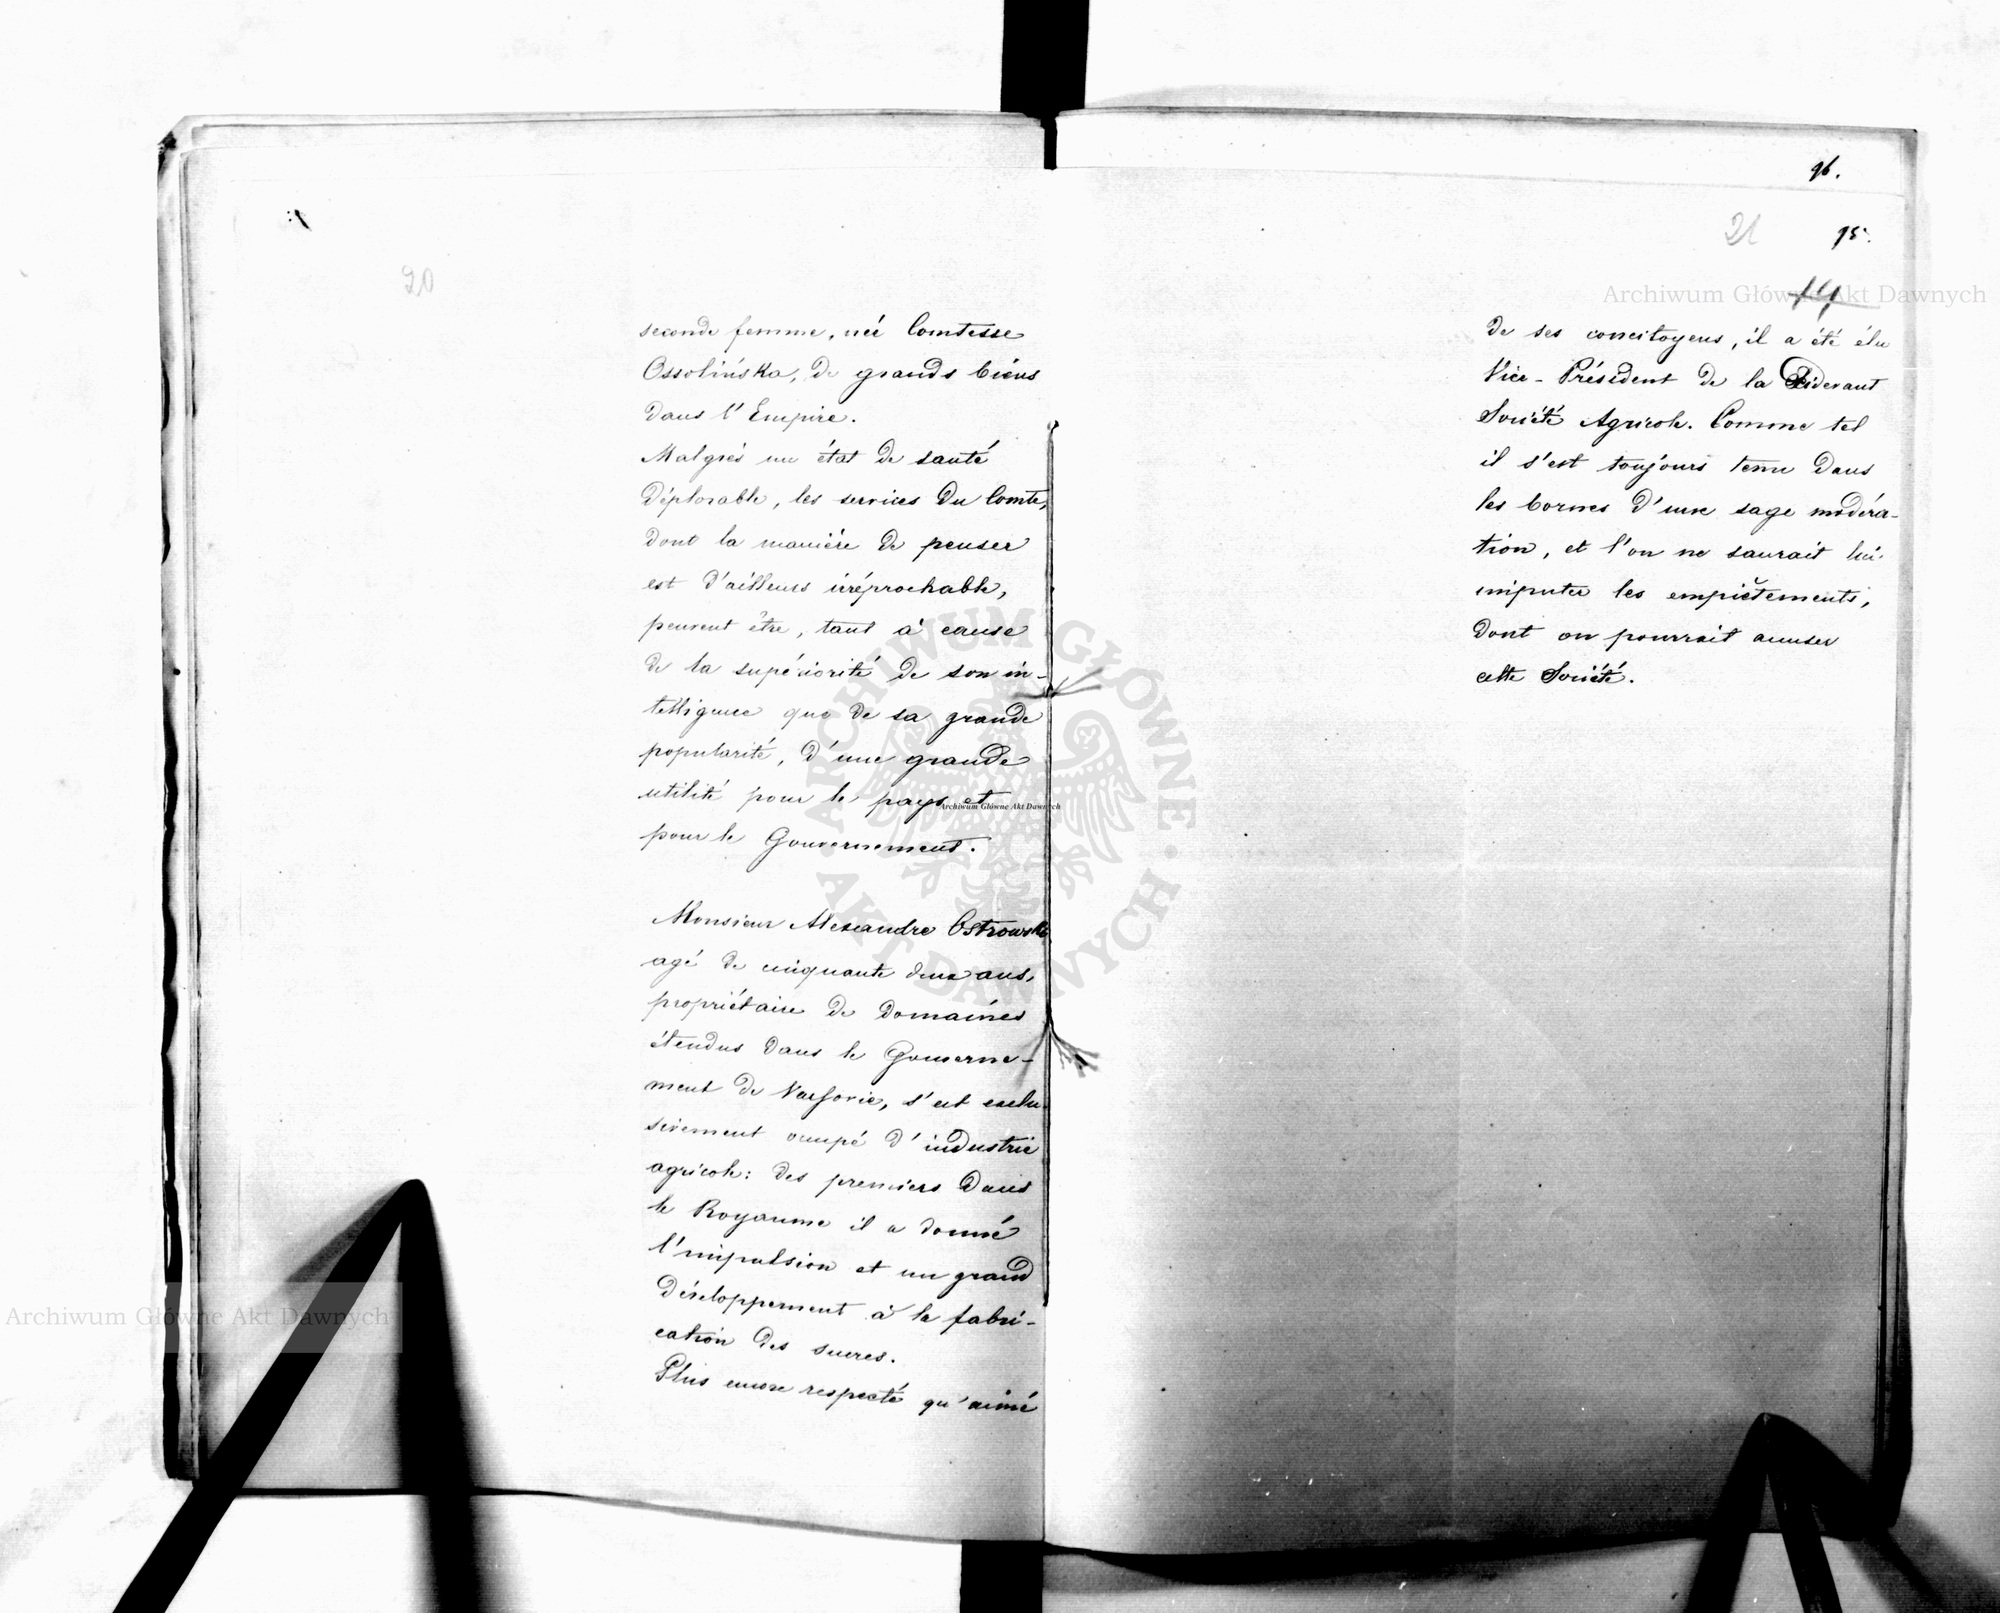 20
seconde femme, née Comtesse
Ossolińska, de grands biens
dans l'Empire.
Malgrés un état de santé
déplorable, les services du Comte,
dont la manière de penser
est d'ailleurs irréprochable,
peuvent être, tant à cause
de la supériorité de son in-
telligence que de sa grande
popularité, d'une grande
utilité pour le pays et
pour le Gouvernement.
Monsieur Alexandre Ostrowski
agé de cinquante deux ans,
propriétaire de domaines
étendus dans le Gouverne-
ment de Varsovie, s'est exclu-
sivement occupé d'industrie
agricole: des premiers dans
le Royaume il a donné
l'impulsion et un grand
développement à la fabri-
cation des sucres.
Plus encore respecté qu'aimé
96.
21
95.
14
de ses concitoyens, il a été élu
Vice-Président de la Cidevant
Société Agricole. Comme tel
il s'est toujours tenu dans
les bornes d'une sage modéra-
tion, et l'on ne saurait lui
imputer les empiètements,
dont on pourrait accuser
cette Société.
Archiwum Główne Akt Dawnych
ARCHIWUM GŁÓWNE · AKT DAWNYCH ·
Archiwum Główne Akt Dawnych
Archiwum Główne Akt Dawnych